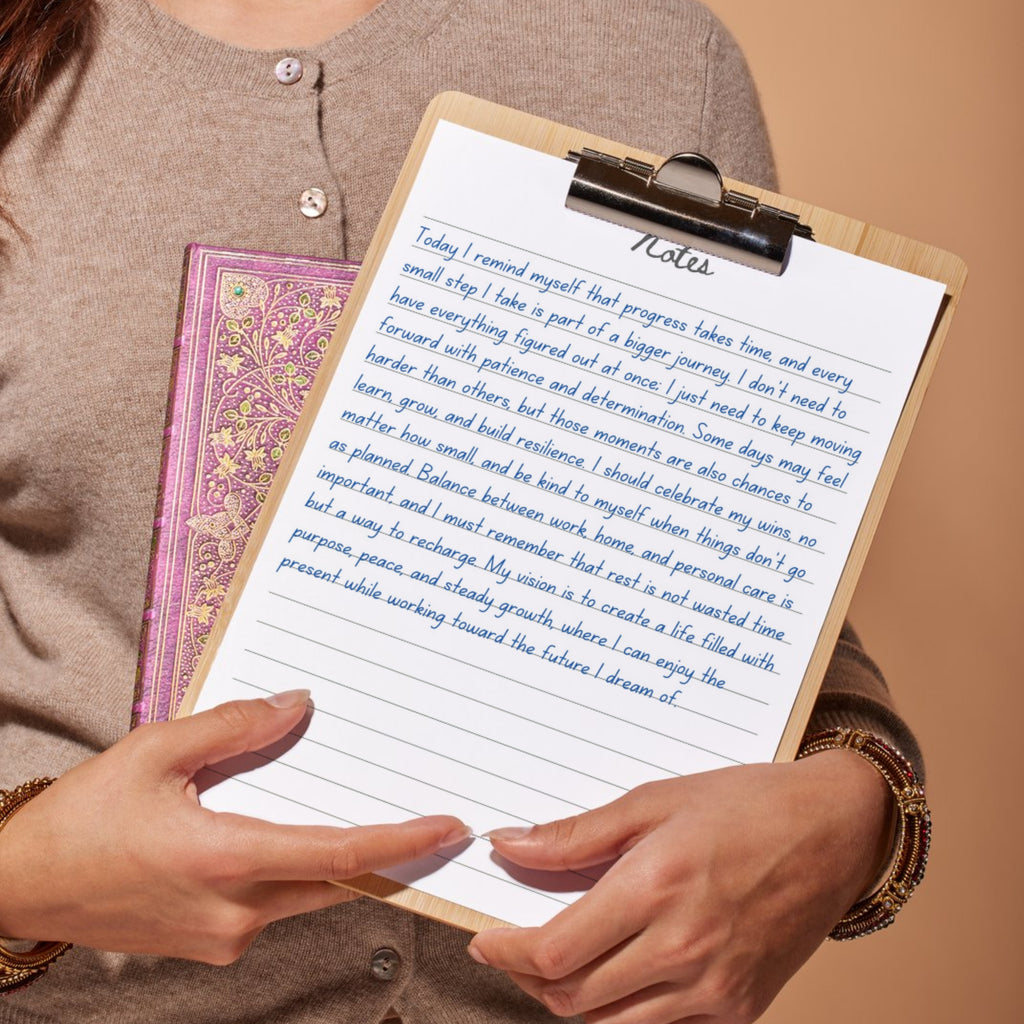 Notes
Today I remind myself that progress takes time, and every
small step I take is part of a bigger journey. I don't need to
have everything figured out at once; I just need to keep moving
forward with patience and determination. Some days may feel
harder than others, but those moments are also chances to
learn, grow, and build resilience. I should celebrate my wins, no
matter how small, and be kind to myself when things don't go
as planned. Balance between work, home, and personal care is
important, and I must remember that rest is not wasted time
but a way to recharge. My vision is to create a life filled with
purpose, peace, and steady growth, where I can enjoy the
present while working toward the future I dream of.